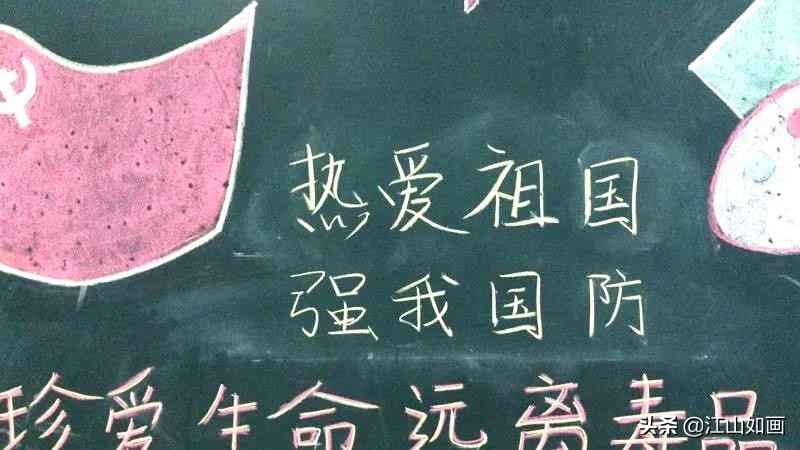 热爱祖国
强我国防
珍爱生命 远离毒品
头条 @江山如画